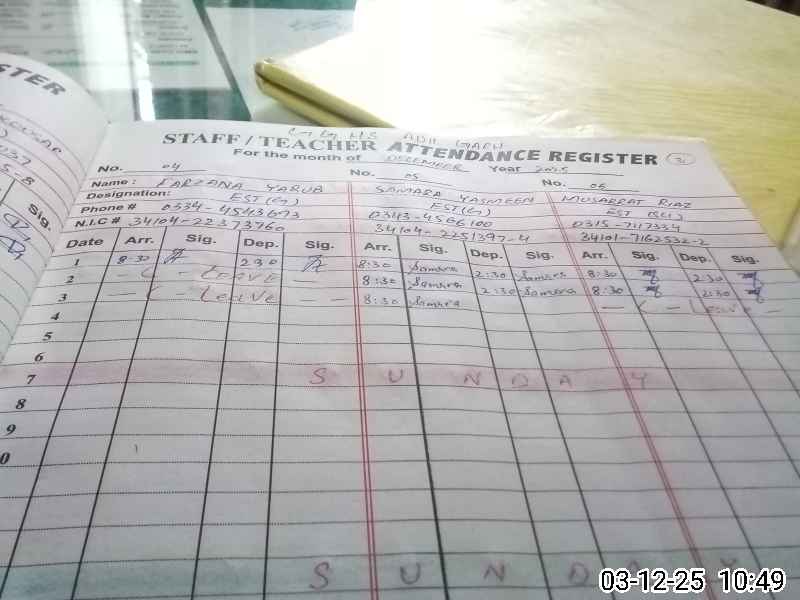 STER
GGHS ADIL GARH
STAFF / TEACHER ATTENDANCE REGISTER 2
For the month of DECEMBER Year 2025
No. 04 No. 05 No. 06
Name : FARZANA YAQUB SAMARA YASMEEN MUSARRAT RIAZ
Designation: EST(G) EST(G) EST (SCI)
Phone # 0334-4543693 0343-4566100 0315-7117334
N.I.C # 34104-22373760 34104-2251397-4 34101-7162532-2
Date Arr. Sig. Dep. Sig. Arr. Sig. Dep. Sig. Arr. Sig. Dep. Sig.
Sig.
1 8:30 2:30 8:30 Samara 2:30 Samara 8:30 2:30
2 - C - Leave - 8:30 Samara 2:30 Samara 8:30 2:30
3 - C Leave - - 8:30 Samara - C - Leave -
4
5
6
7 S U N D A Y
8
9
0
S U N D A Y
03-12-25 10:49